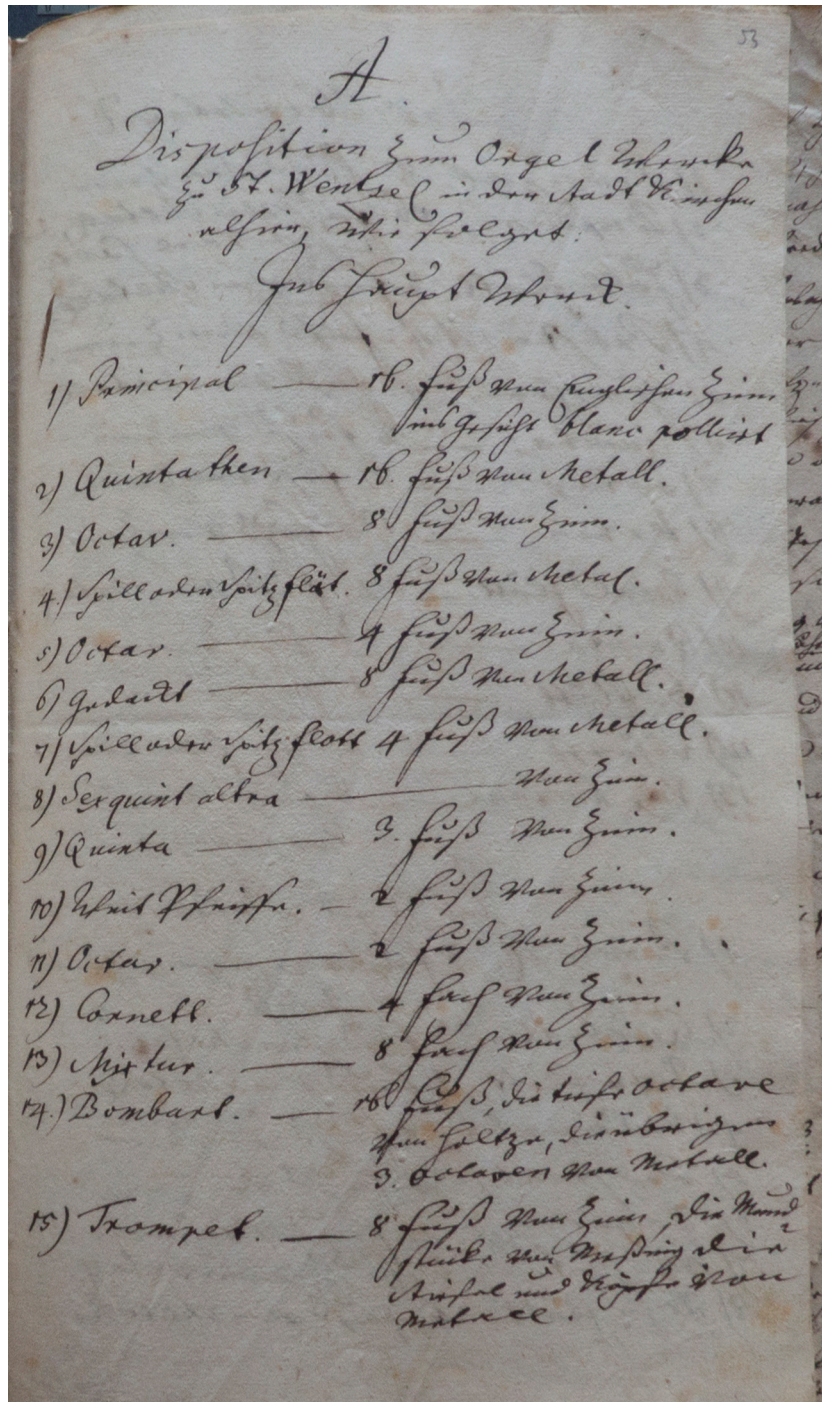 53
A.
Disposition zum Orgel Wercke
zu St. Wentzel in der Stadt Kirchen
alhier, wie folget.
Ins Haupt Werck.
1) Principal — 16. Fuß von Englischen Zinn
ins Gesicht blanc polliret
2) Quintathen — 16. Fuß von Metall.
3) Octav. — 8 Fuß von Zinn.
4.) Spill oder Spitz flöt. 8 Fuß von Metal.
5) Octav. — 4 Fuß von Zinn.
6) Gedackt — 8 Fuß von Metall.
7) Spill oder Spitz flött 4 Fuß von Metall.
8) Sexquint altra — von Zinn.
9) Quinta — 3. Fuß von Zinn.
10) Weit Pfeiffe. — 2 Fuß von Zinn
11) Octav. — 2 Fuß von Zinn.
12) Cornett. — 4 fach von Zinn.
13) Mixtur. — 8 fach von Zinn.
14.) Bombart. — 16 Fuß, die tiefe octave
von Holtze, die übrigen
3. octaven von Metall.
15) Trompet. — 8 Fuß von Zinn, die Mund
stücke von Meßing die
Stiefel und Köpfe von
Metall.